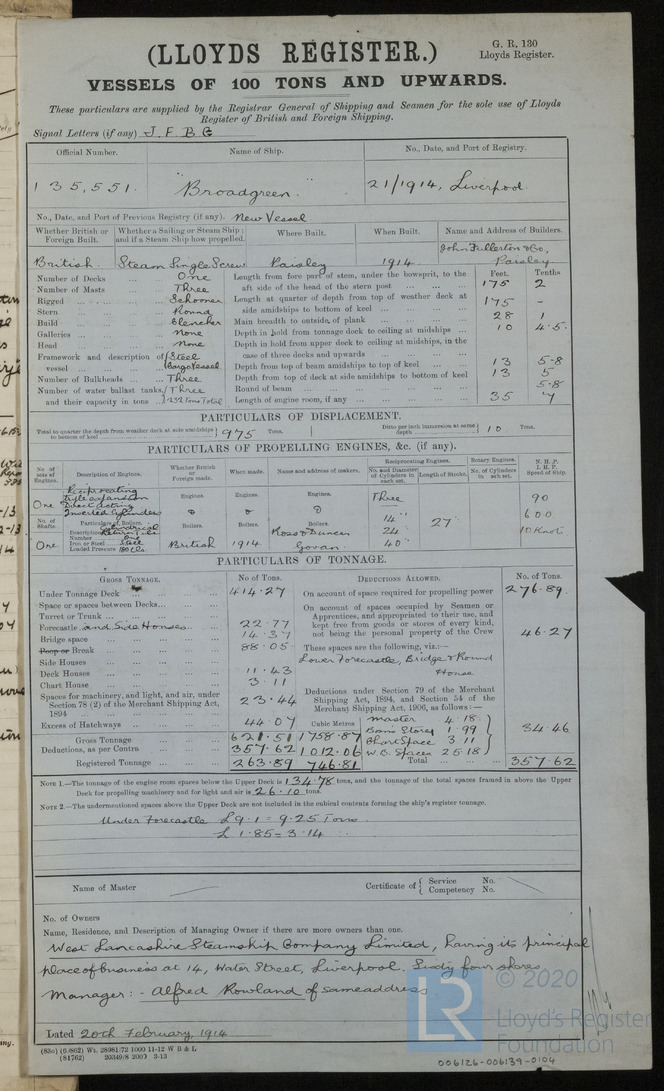 (LLOYDS REGISTER.)
G. R. 130
Lloyds Register.
VESSELS OF 100 TONS AND UPWARDS.
These particulars are supplied by the Registrar General of Shipping and Seamen for the sole use of Lloyds
Register of British and Foreign Shipping.
Signal Letters (if any) J. F. B. G
Official Number. Name of Ship. No., Date, and Port of Registry.
135,551. "Broadgreen" 21/1914, Liverpool
No., Date, and Port of Previous Registry (if any). New Vessel
Whether British or Foreign Built. Whether a Sailing or Steam Ship; and if a Steam Ship how propelled. Where Built. When Built. Name and Address of Builders.
British. Steam Single Screw Paisley 1914 John Fullerton & Co., Paisley
Number of Decks One
Number of Masts Three
Rigged Schooner
Stern Round
Build Clencher
Galleries None
Head None
Framework and description of vessel Steel Cargo Vessel
Number of Bulkheads Three
Number of water ballast tanks, and their capacity in tons Three 232 Tons Total
Feet. Tenths
Length from fore part of stem, under the bowsprit, to the aft side of the head of the stern post 175 2
Length at quarter of depth from top of weather deck at side amidships to bottom of keel 175 -
Main breadth to outside of plank 28 1
Depth in hold from tonnage deck to ceiling at midships 10 4.5.
Depth in hold from upper deck to ceiling at midships, in the case of three decks and upwards
Depth from top of beam amidships to top of keel 13 5.8
Depth from top of deck at side amidships to bottom of keel 13 5
Round of beam 5.8
Length of engine room, if any 35 7
PARTICULARS OF DISPLACEMENT.
Total to quarter the depth from weather deck at side amidships to bottom of keel 975 Tons. Ditto per inch immersion at same depth 10 Tons.
PARTICULARS OF PROPELLING ENGINES, &c. (if any).
No. of sets of Engines. Description of Engines. Whether British or Foreign made. When made. Name and address of makers. Reciprocating Engines. No. and Diameter of Cylinders in each set. Length of Stroke. Rotary Engines. No. of Cylinders in each set. N. H. P. I. H. P. Speed of Ship.
One Reciprocating Triple expansion Direct acting Inverted Cylinders
Engines. Engines. Engines. Three 90
No. of Shafts. Particulars of Boilers. Boilers. Boilers. Boilers. 14" 27" 600
Description Cylindrical
Number One
Iron or Steel Steel
Loaded Pressure 180 lbs.
One British 1914 Ross & Duncan Govan 24" 40" 10 Knots
PARTICULARS OF TONNAGE.
GROSS TONNAGE. No of Tons. DEDUCTIONS ALLOWED. No. of Tons.
Under Tonnage Deck 414.27
Space or spaces between Decks
Turret or Trunk
Forecastle and Side Houses 22.77
Bridge space 14.37
Poop or Break 88.05
Side Houses
Deck Houses 11.43
Chart House 3.11
Spaces for machinery, and light, and air, under Section 78 (2) of the Merchant Shipping Act, 1894 23.44
Excess of Hatchways 44.07 Cubic Metres
Gross Tonnage 621.51 1758.87
Deductions, as per Contra 357.62 1012.06
Registered Tonnage 263.89 746.81
On account of space required for propelling power 276.89.
On account of spaces occupied by Seamen or Apprentices, and appropriated to their use, and kept free from goods or stores of every kind, not being the personal property of the Crew 46.27
These spaces are the following, viz.:—
Lower Forecastle, Bridge & Round House
Deductions under Section 79 of the Merchant Shipping Act, 1894, and Section 54 of the Merchant Shipping Act, 1906, as follows:—
Master 4.18.
Bosns Stores 1.99
Chart Space 3.11
W. B. Spaces 25.18
34.46
Total 357.62
NOTE 1.—The tonnage of the engine room spaces below the Upper Deck is 134.78 tons, and the tonnage of the total spaces framed in above the Upper
Deck for propelling machinery and for light and air is 26.10 tons.
NOTE 2.—The undermentioned spaces above the Upper Deck are not included in the cubical contents forming the ship's register tonnage.
Under Forecastle £9.1 = 9.25 Tons
£ 1.85 = 3.14
Name of Master Certificate of { Service No. Competency No.
No. of Owners
Name, Residence, and Description of Managing Owner if there are more owners than one.
West Lancashire Steamship Company Limited, having its principal
place of business at 14, Water Street, Liverpool. Sixty four shares
Manager: - Alfred Rowland of same address
© 2020
LR
Lloyd's Register
Foundation
Dated 20th February, 1914
(83o) (6,862) Wt. 28981/72 1000 11-12 W B & L
(81762) 20349/8 2000 3-13
006126-006139-0104